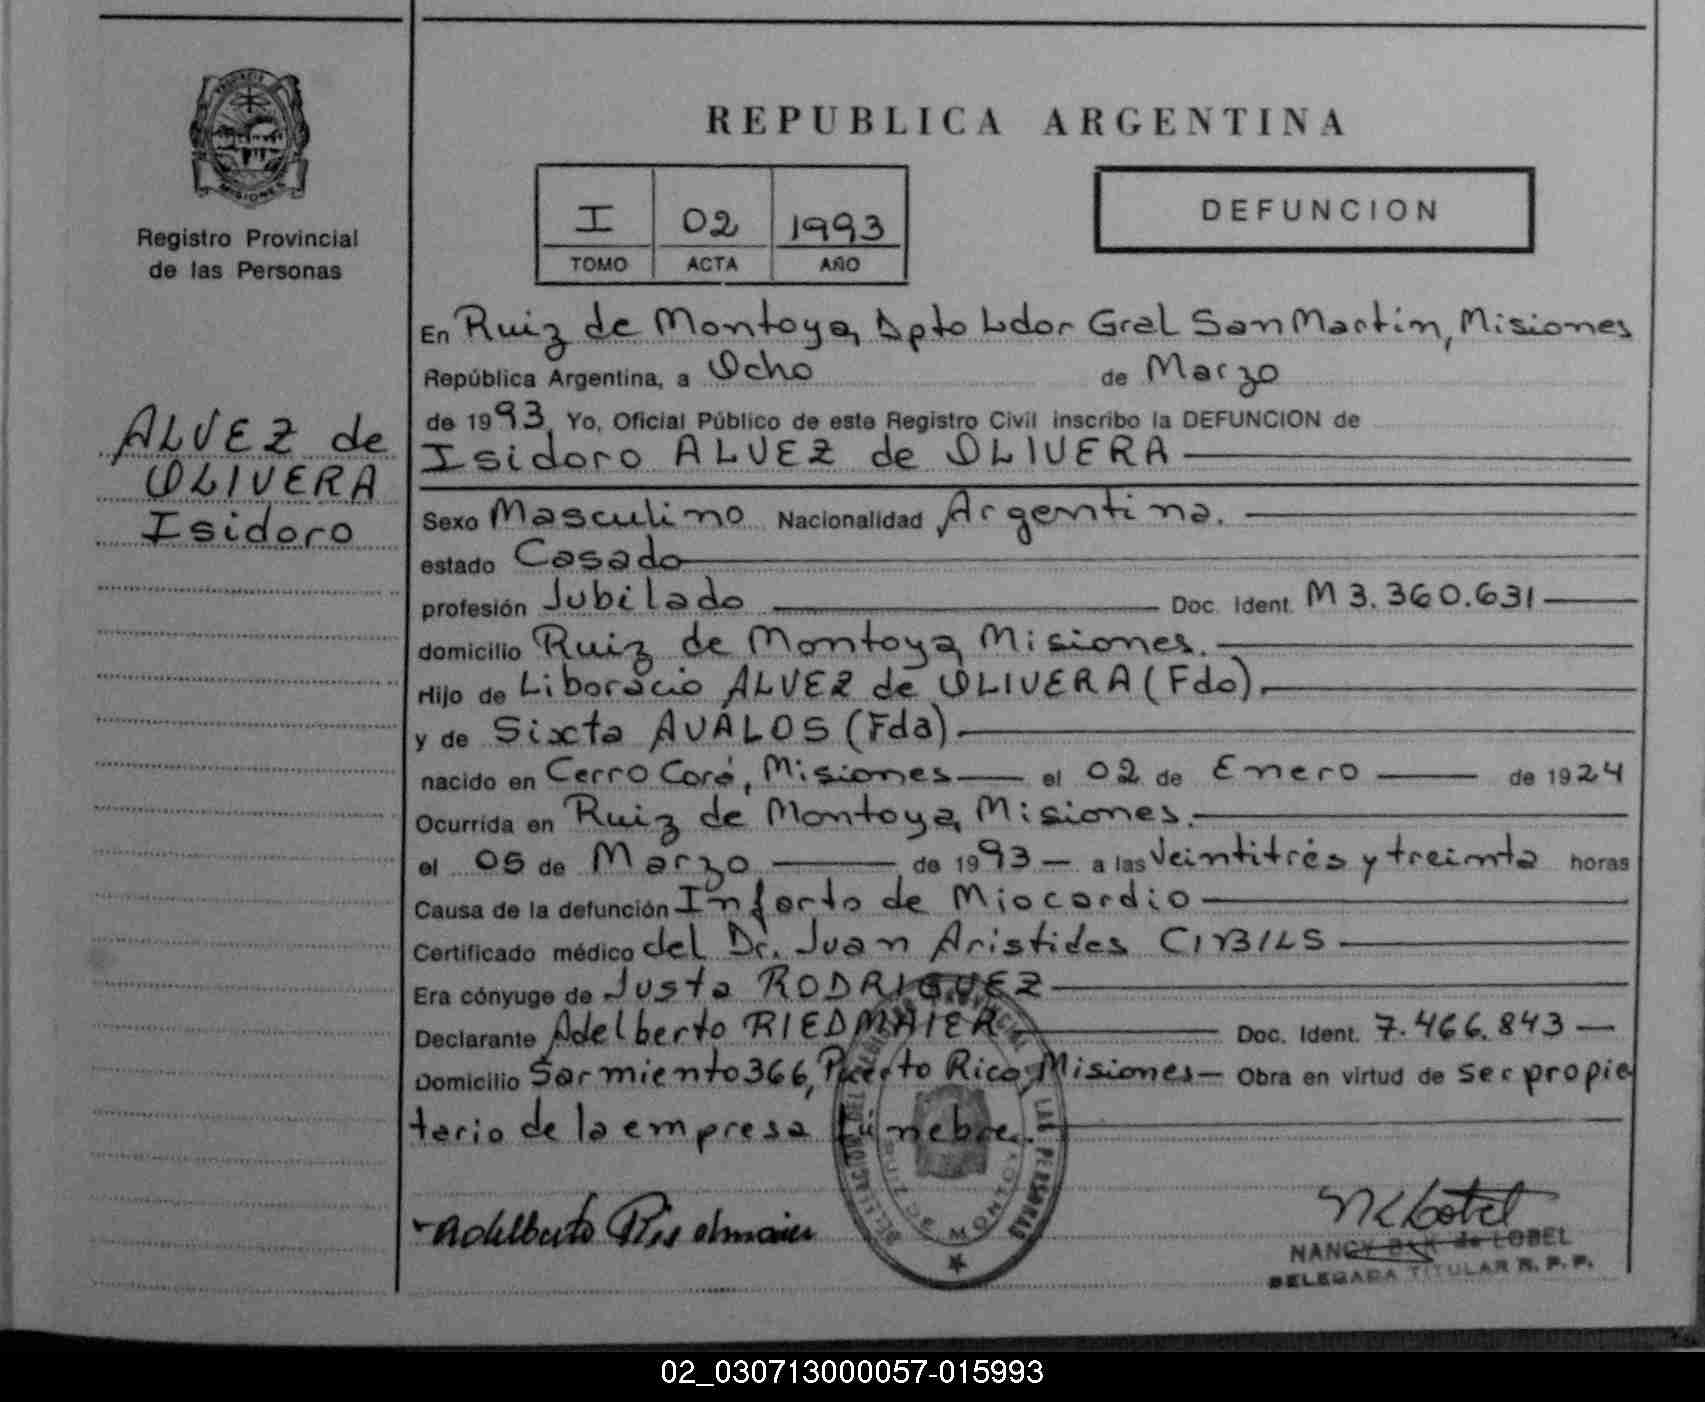 REPUBLICA ARGENTINA
MISIONES
Registro Provincial
de las Personas
I 02 1993
TOMO ACTA AÑO
DEFUNCION
ALVEZ de
OLIVERA
Isidoro
En Ruiz de Montoya, Dpto Ldor Gral San Martin, Misiones
República Argentina, a Ocho de Marzo
de 1993, Yo, Oficial Público de este Registro Civil inscribo la DEFUNCION de
Isidoro ALVEZ de OLIVERA
Sexo Masculino Nacionalidad Argentina.
estado Casado
profesión Jubilado Doc. Ident. M 3.360.631
domicilio Ruiz de Montoya, Misiones.
Hijo de Liboracio ALVEZ de OLIVERA (Fdo),
y de Sixta AVALOS (Fda).
nacido en Cerro Corá, Misiones el 02 de Enero de 1924
Ocurrida en Ruiz de Montoya, Misiones.
el 05 de Marzo de 1993 a las Veintitrés y treinta horas
Causa de la defunción Infarto de Miocardio
Certificado médico del Dr. Juan Aristides CIBILS
Era cónyuge de Justa RODRIGUEZ
Declarante Adelberto RIEDMAIER Doc. Ident. 7.466.843
Domicilio Sarmiento 366, Puerto Rico, Misiones Obra en virtud de ser propie
tario de la empresa fúnebre.
DELEGACION DEL REGISTRO PROVINCIAL DE LAS PERSONAS
RUIZ DE MONTOYA
Adelberto Riedmaier
NANCY de LOBEL
DELEGADA TITULAR R. P. P.
02_030713000057-015993